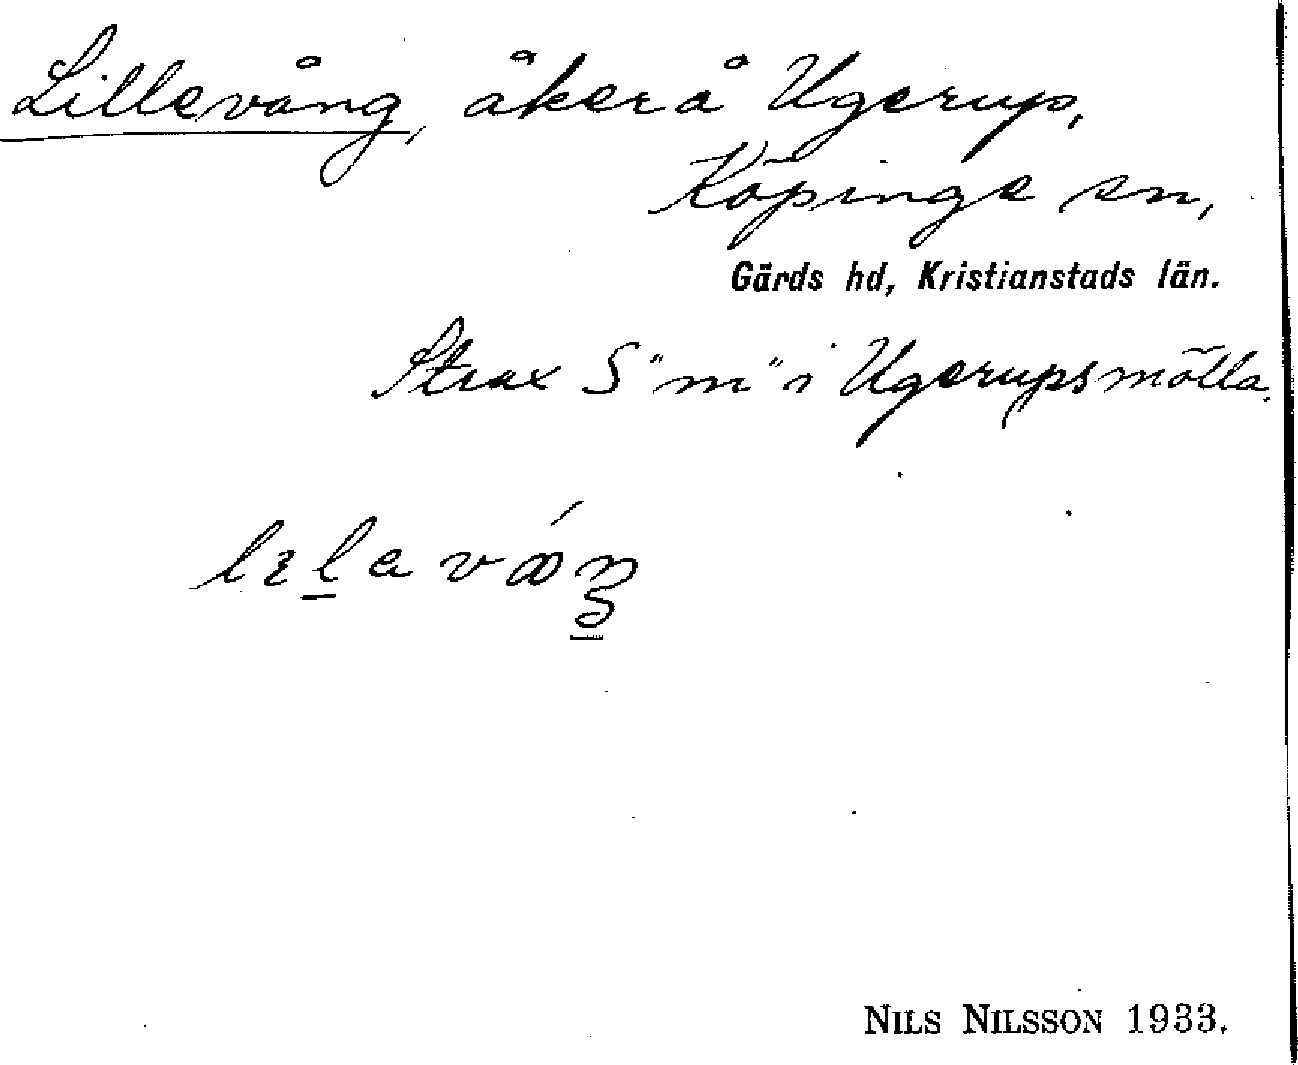 Lillevång, åker å Ugerup,
Köpinge sn,
Gärds hd, Kristianstads län.
Strax S "m" i Ugerupsmölla.
NILS NILSSON 1933.